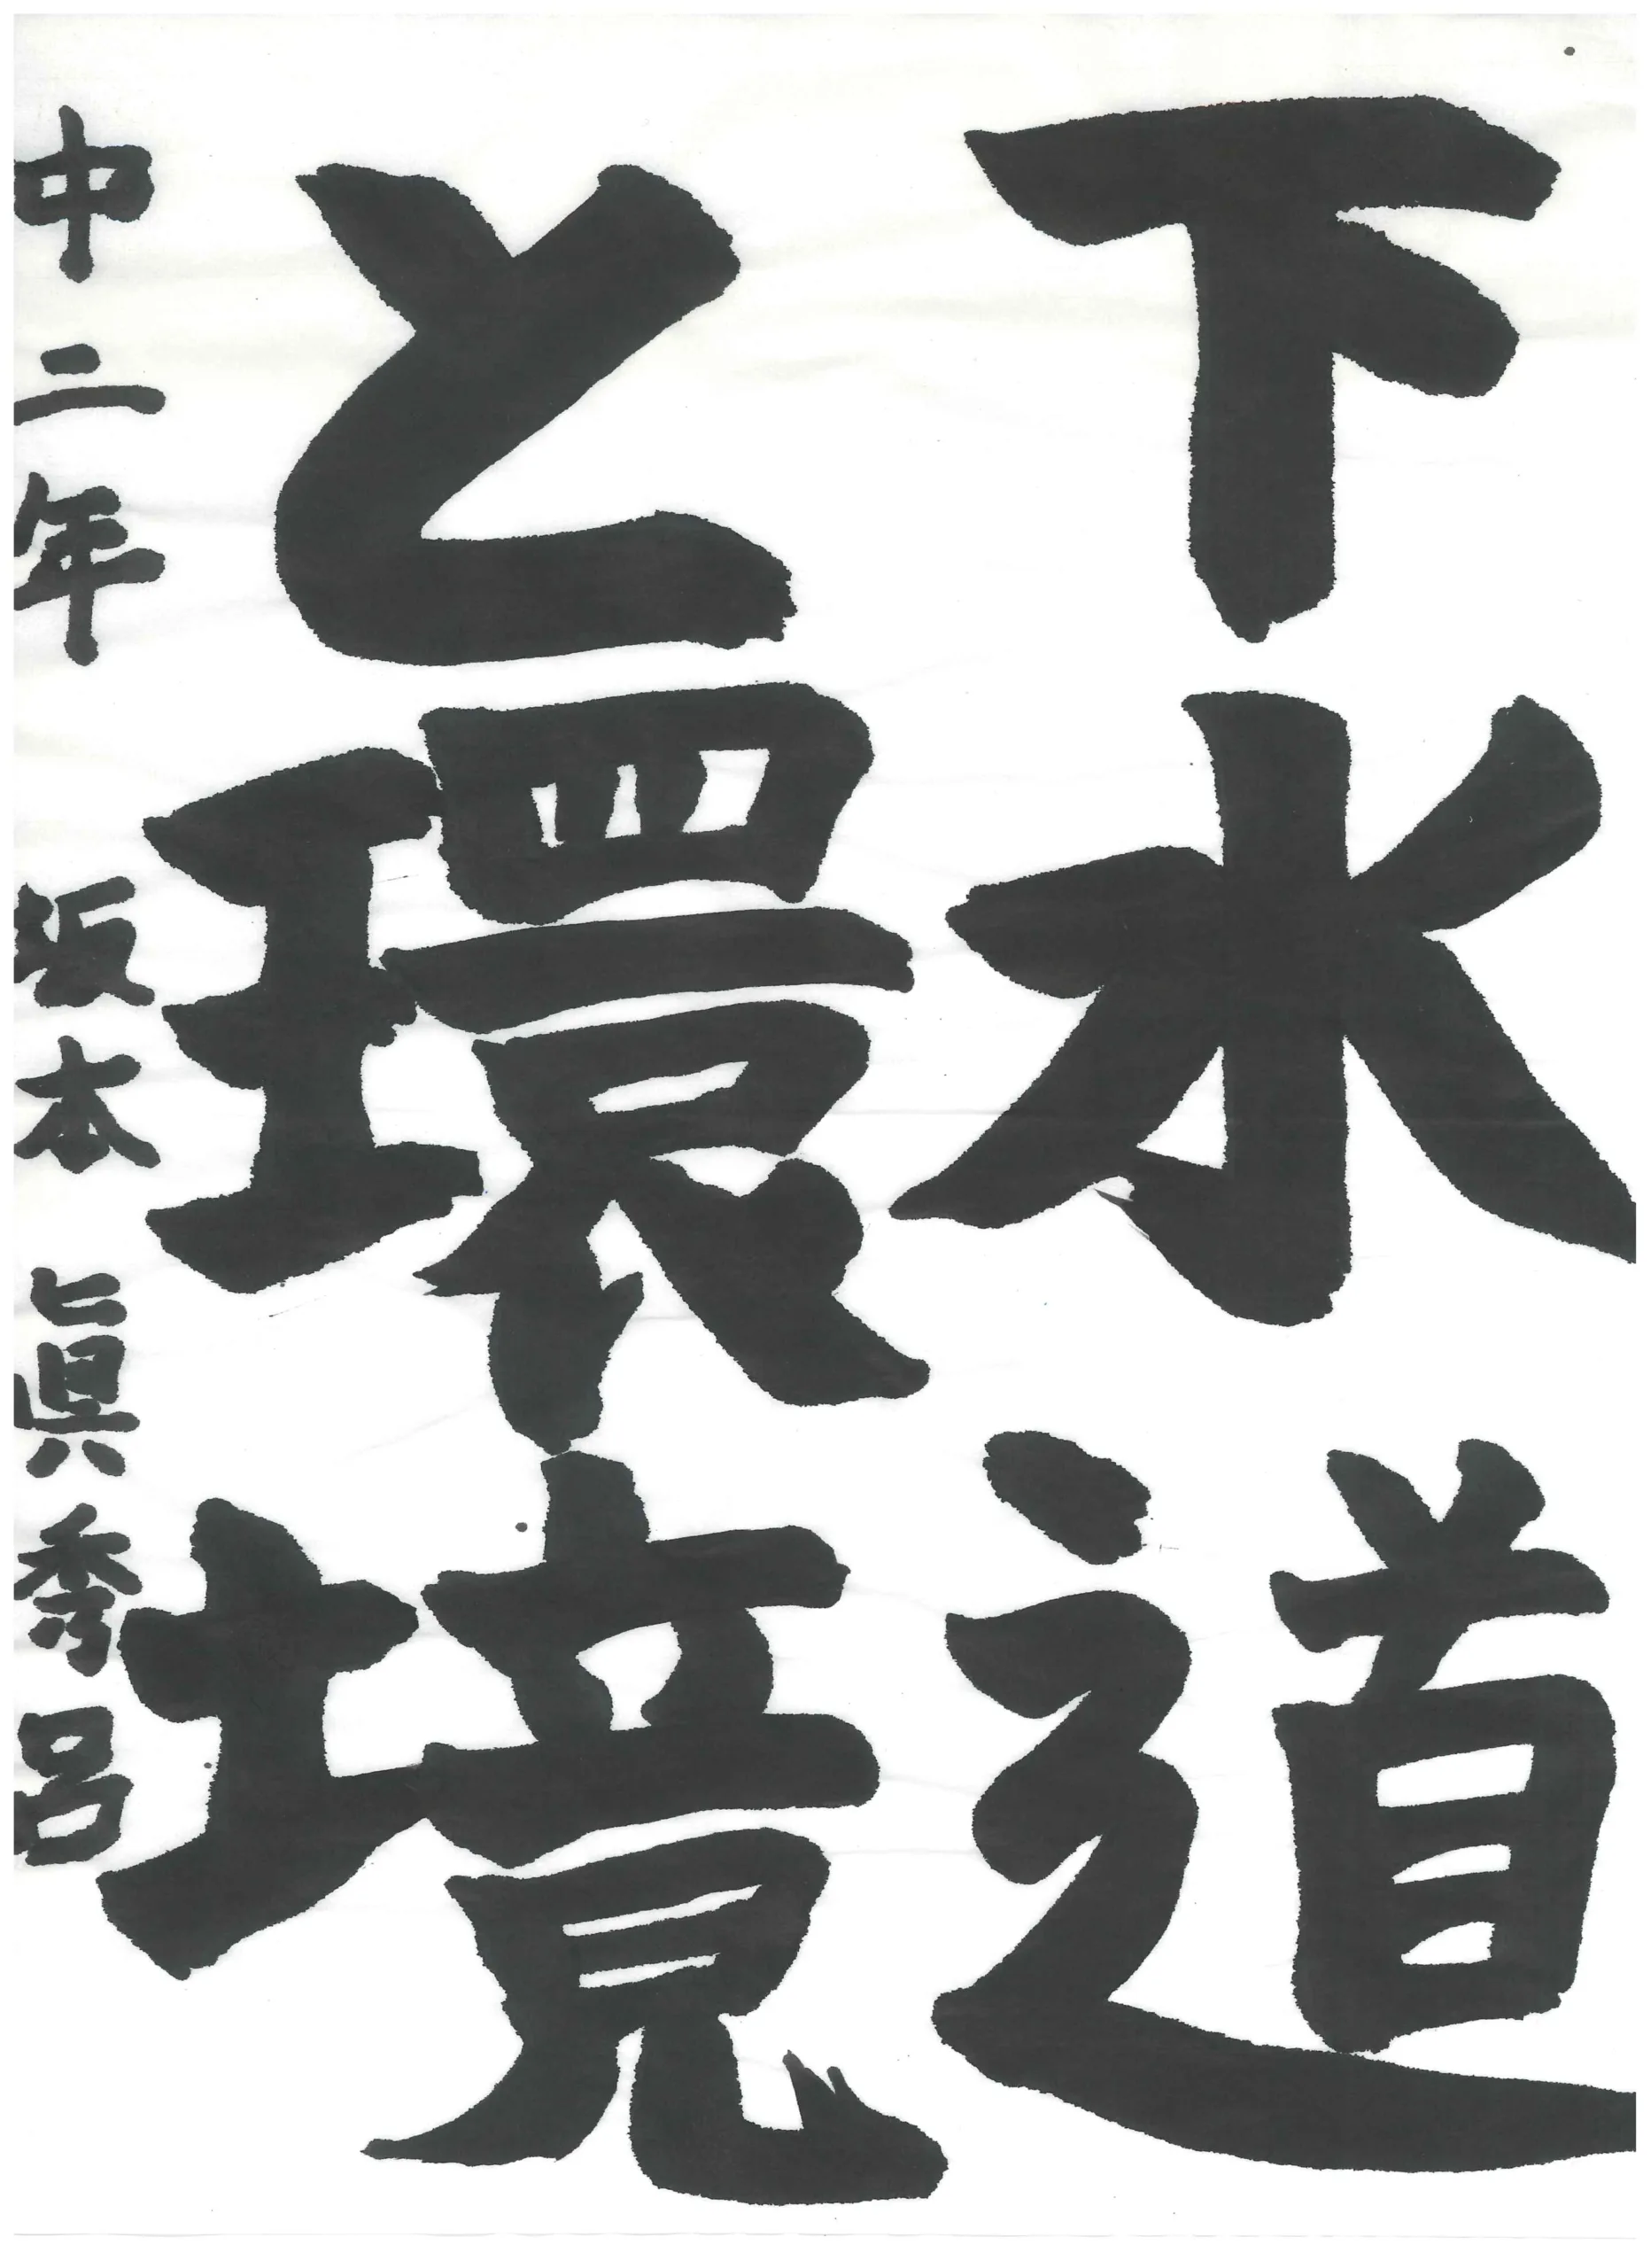 下水道
と環境
中二年 坂本眞秀呂